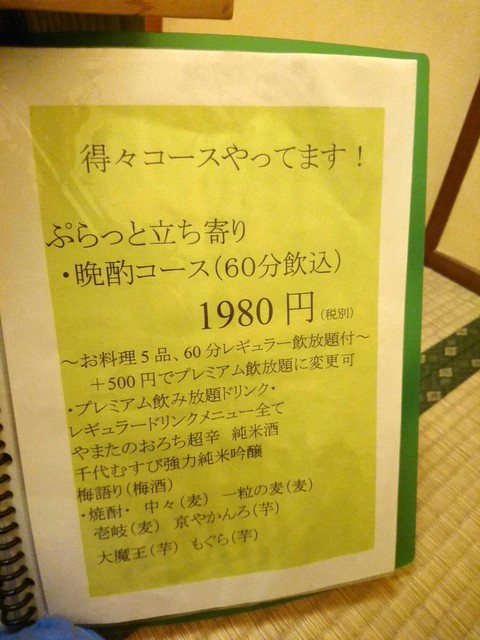 得々コースやってます！
ぷらっと立ち寄り
・晩酌コース（60分飲込）
1980円（税別）
～お料理5品、60分レギュラー飲放題付～
＋500円でプレミアム飲放題に変更可
・プレミアム飲み放題ドリンク・
レギュラードリンクメニュー全て
やまたのおろち超辛　純米酒
千代むすび強力純米吟醸
梅語り（梅酒）
・焼酎・　中々（麦）　一粒の麦（麦）
壱岐（麦）　京やかんろ（芋）
大魔王（芋）　もぐら（芋）